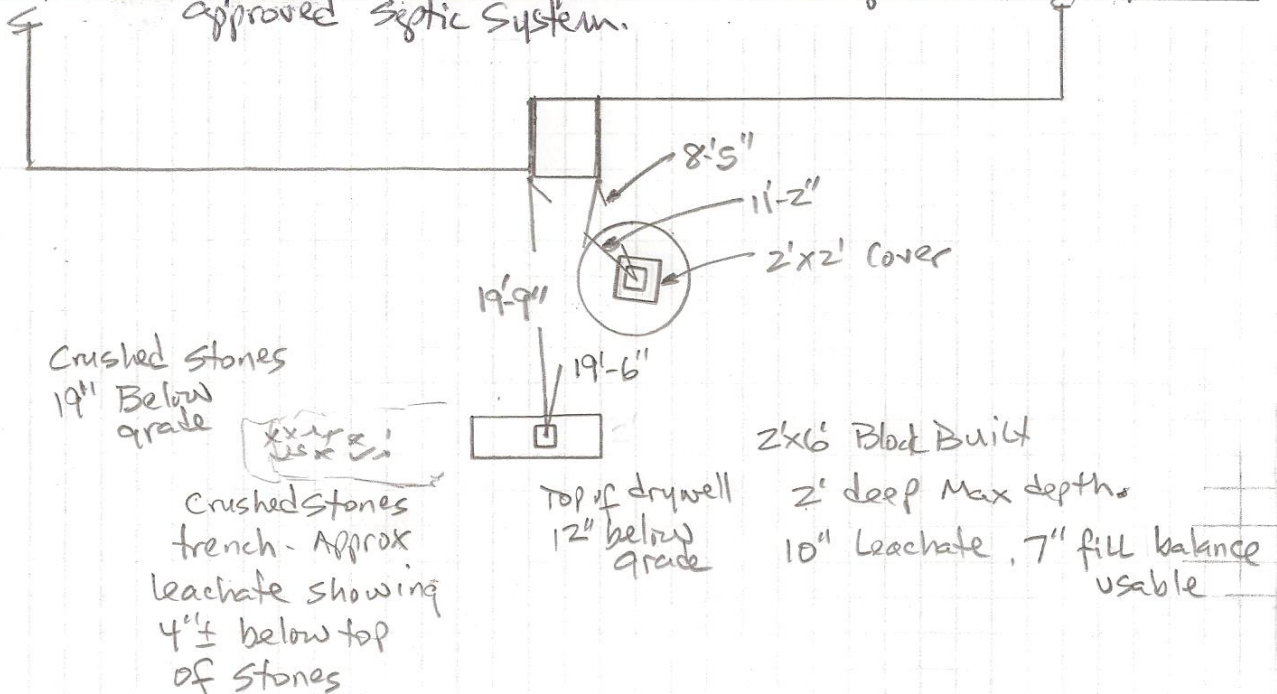 approved Septic System.
8'-5"
11'-2"
2'x2' Cover
19'-9"
19'-6"
Crushed Stones
19" Below
grade
Crushed Stones
trench - Approx
leachate showing
4"± below top
of Stones
Top of drywell
12" below
grade
2'x6' Block Built
2' deep Max depth.
10" Leachate, 7" fill balance
usable